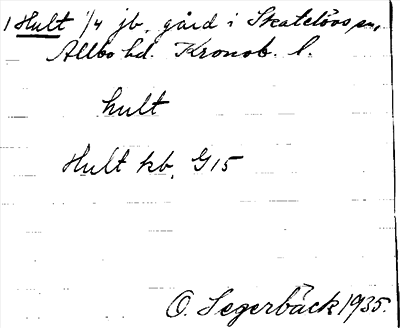 1 Hult 1/4 jb. gård i Skatelövs sn,
Allbo hd. Kronob. l.
hult
Hult kb, G15
O. Segerbäck 1935.